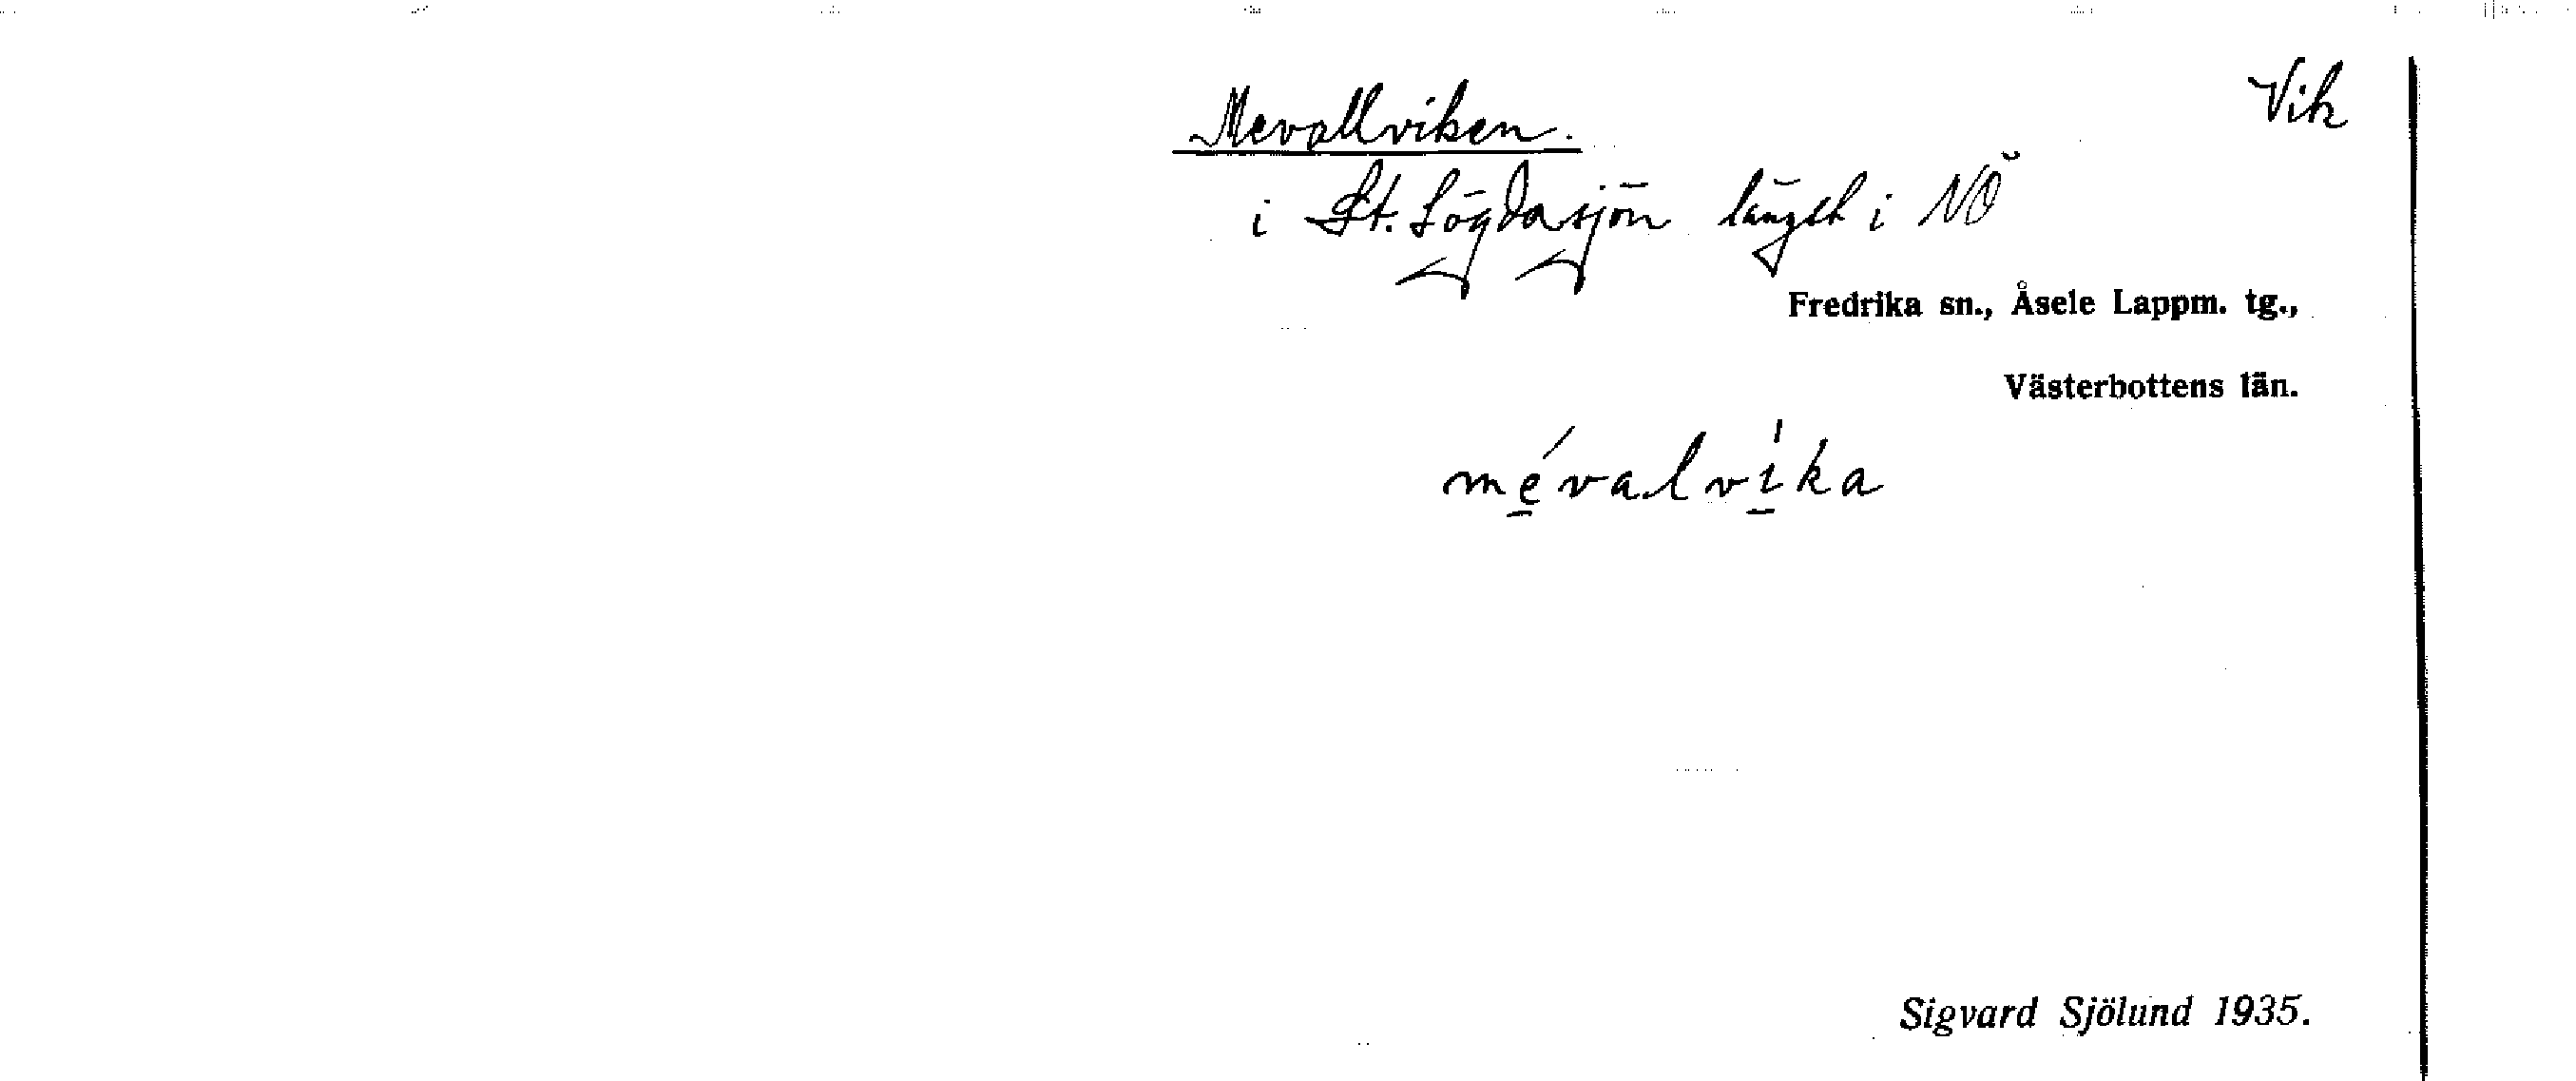 Mevallviken.
Vik
i St. Lögdasjön längst i NÖ
Fredrika sn., Åsele Lappm. tg.,
Västerbottens län.
mé̱valví̱ka
Sigvard Sjölund 1935.